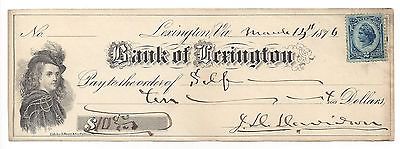 No. Lexington, Va. March 15th 1876
Bank of Lexington
Pay to the order of Self
Ten Dollars
$10 00/100
J. D. Davidson